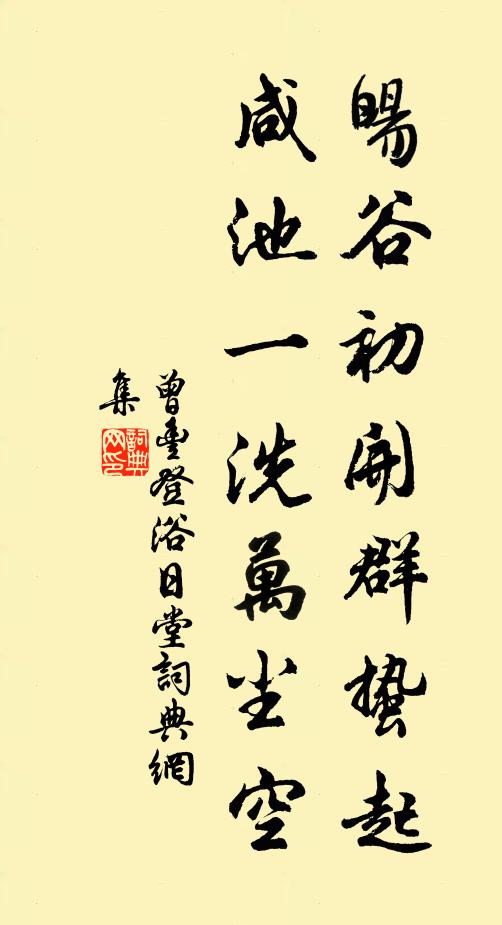 暘谷初開群蟄起
咸池一洗萬尘空
曾豊登浴日堂詞典網
集
詞典網印